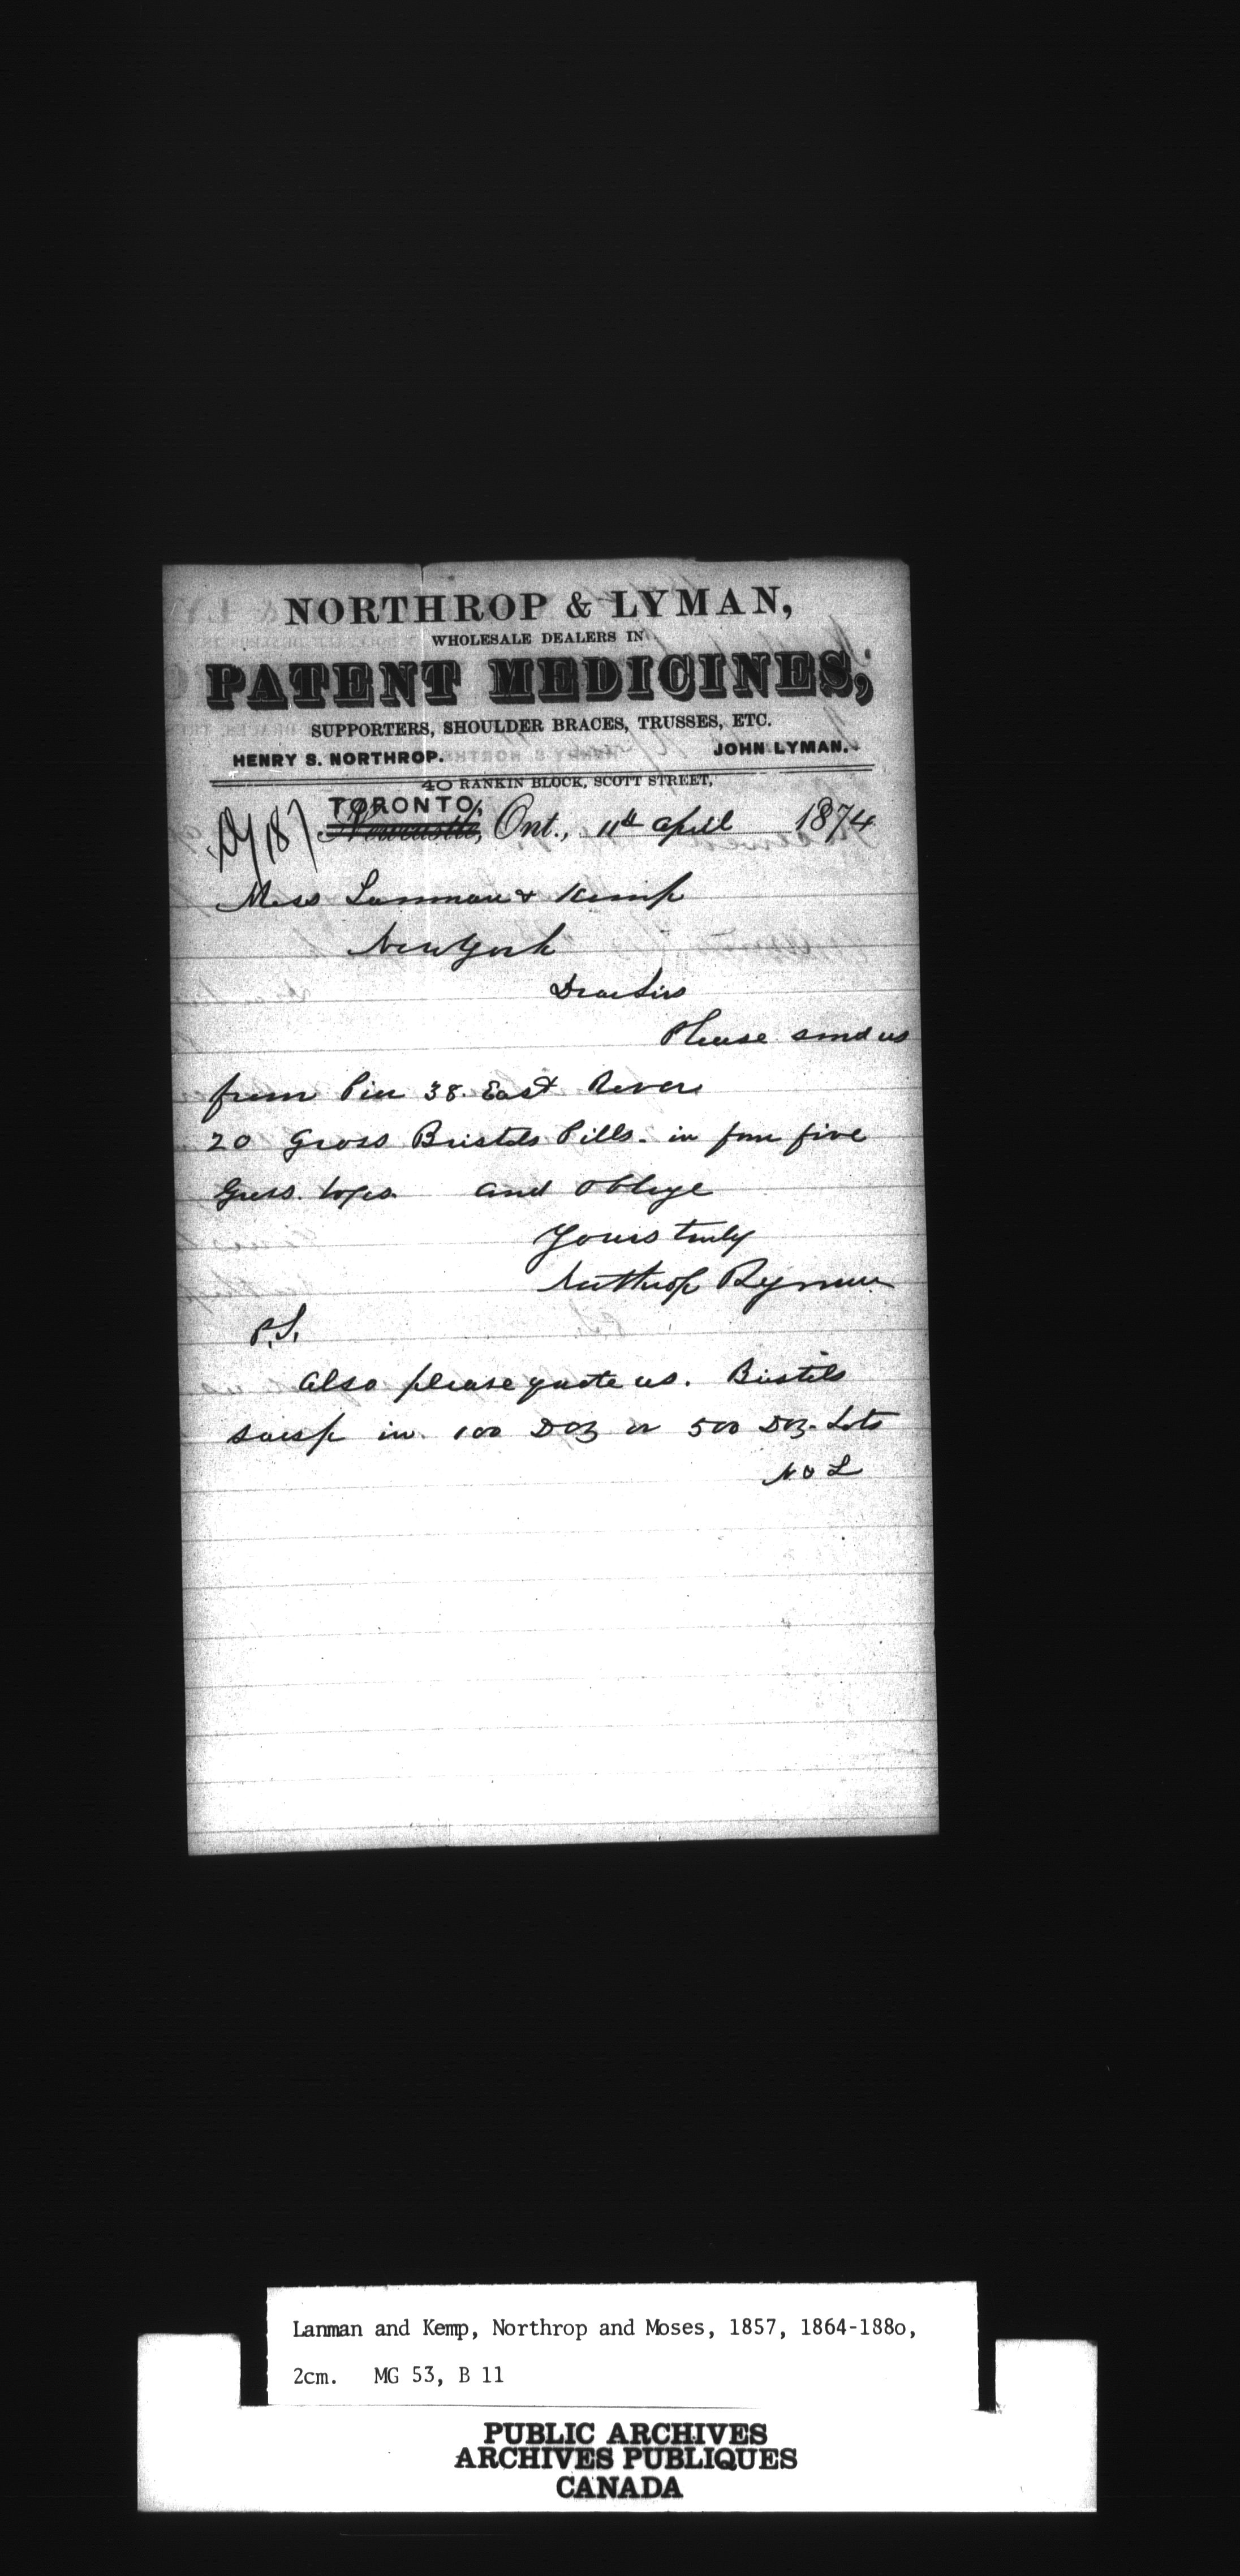 NORTHROP & LYMAN,
WHOLESALE DEALERS IN
PATENT MEDICINES,
SUPPORTERS, SHOULDER BRACES, TRUSSES, ETC.
HENRY S. NORTHROP. JOHN LYMAN.
40 RANKIN BLOCK, SCOTT STREET,
TORONTO,
Newcastle, Ont., 11th April 1874
Mess Lanman & Kemp
New York
Dear Sirs
Please send us
from Pier 38. East River
20 Gross Bristols Pills. in four five
Gross. boxes. and oblige
Yours truly
Northrop & Lyman
P.S.
Also please quote us. Bristols
Sarsp in 100 Doz or 500 Doz. Lots
N & L
Lanman and Kemp, Northrop and Moses, 1857, 1864-188o,
2cm. MG 53, B 11
PUBLIC ARCHIVES
ARCHIVES PUBLIQUES
CANADA